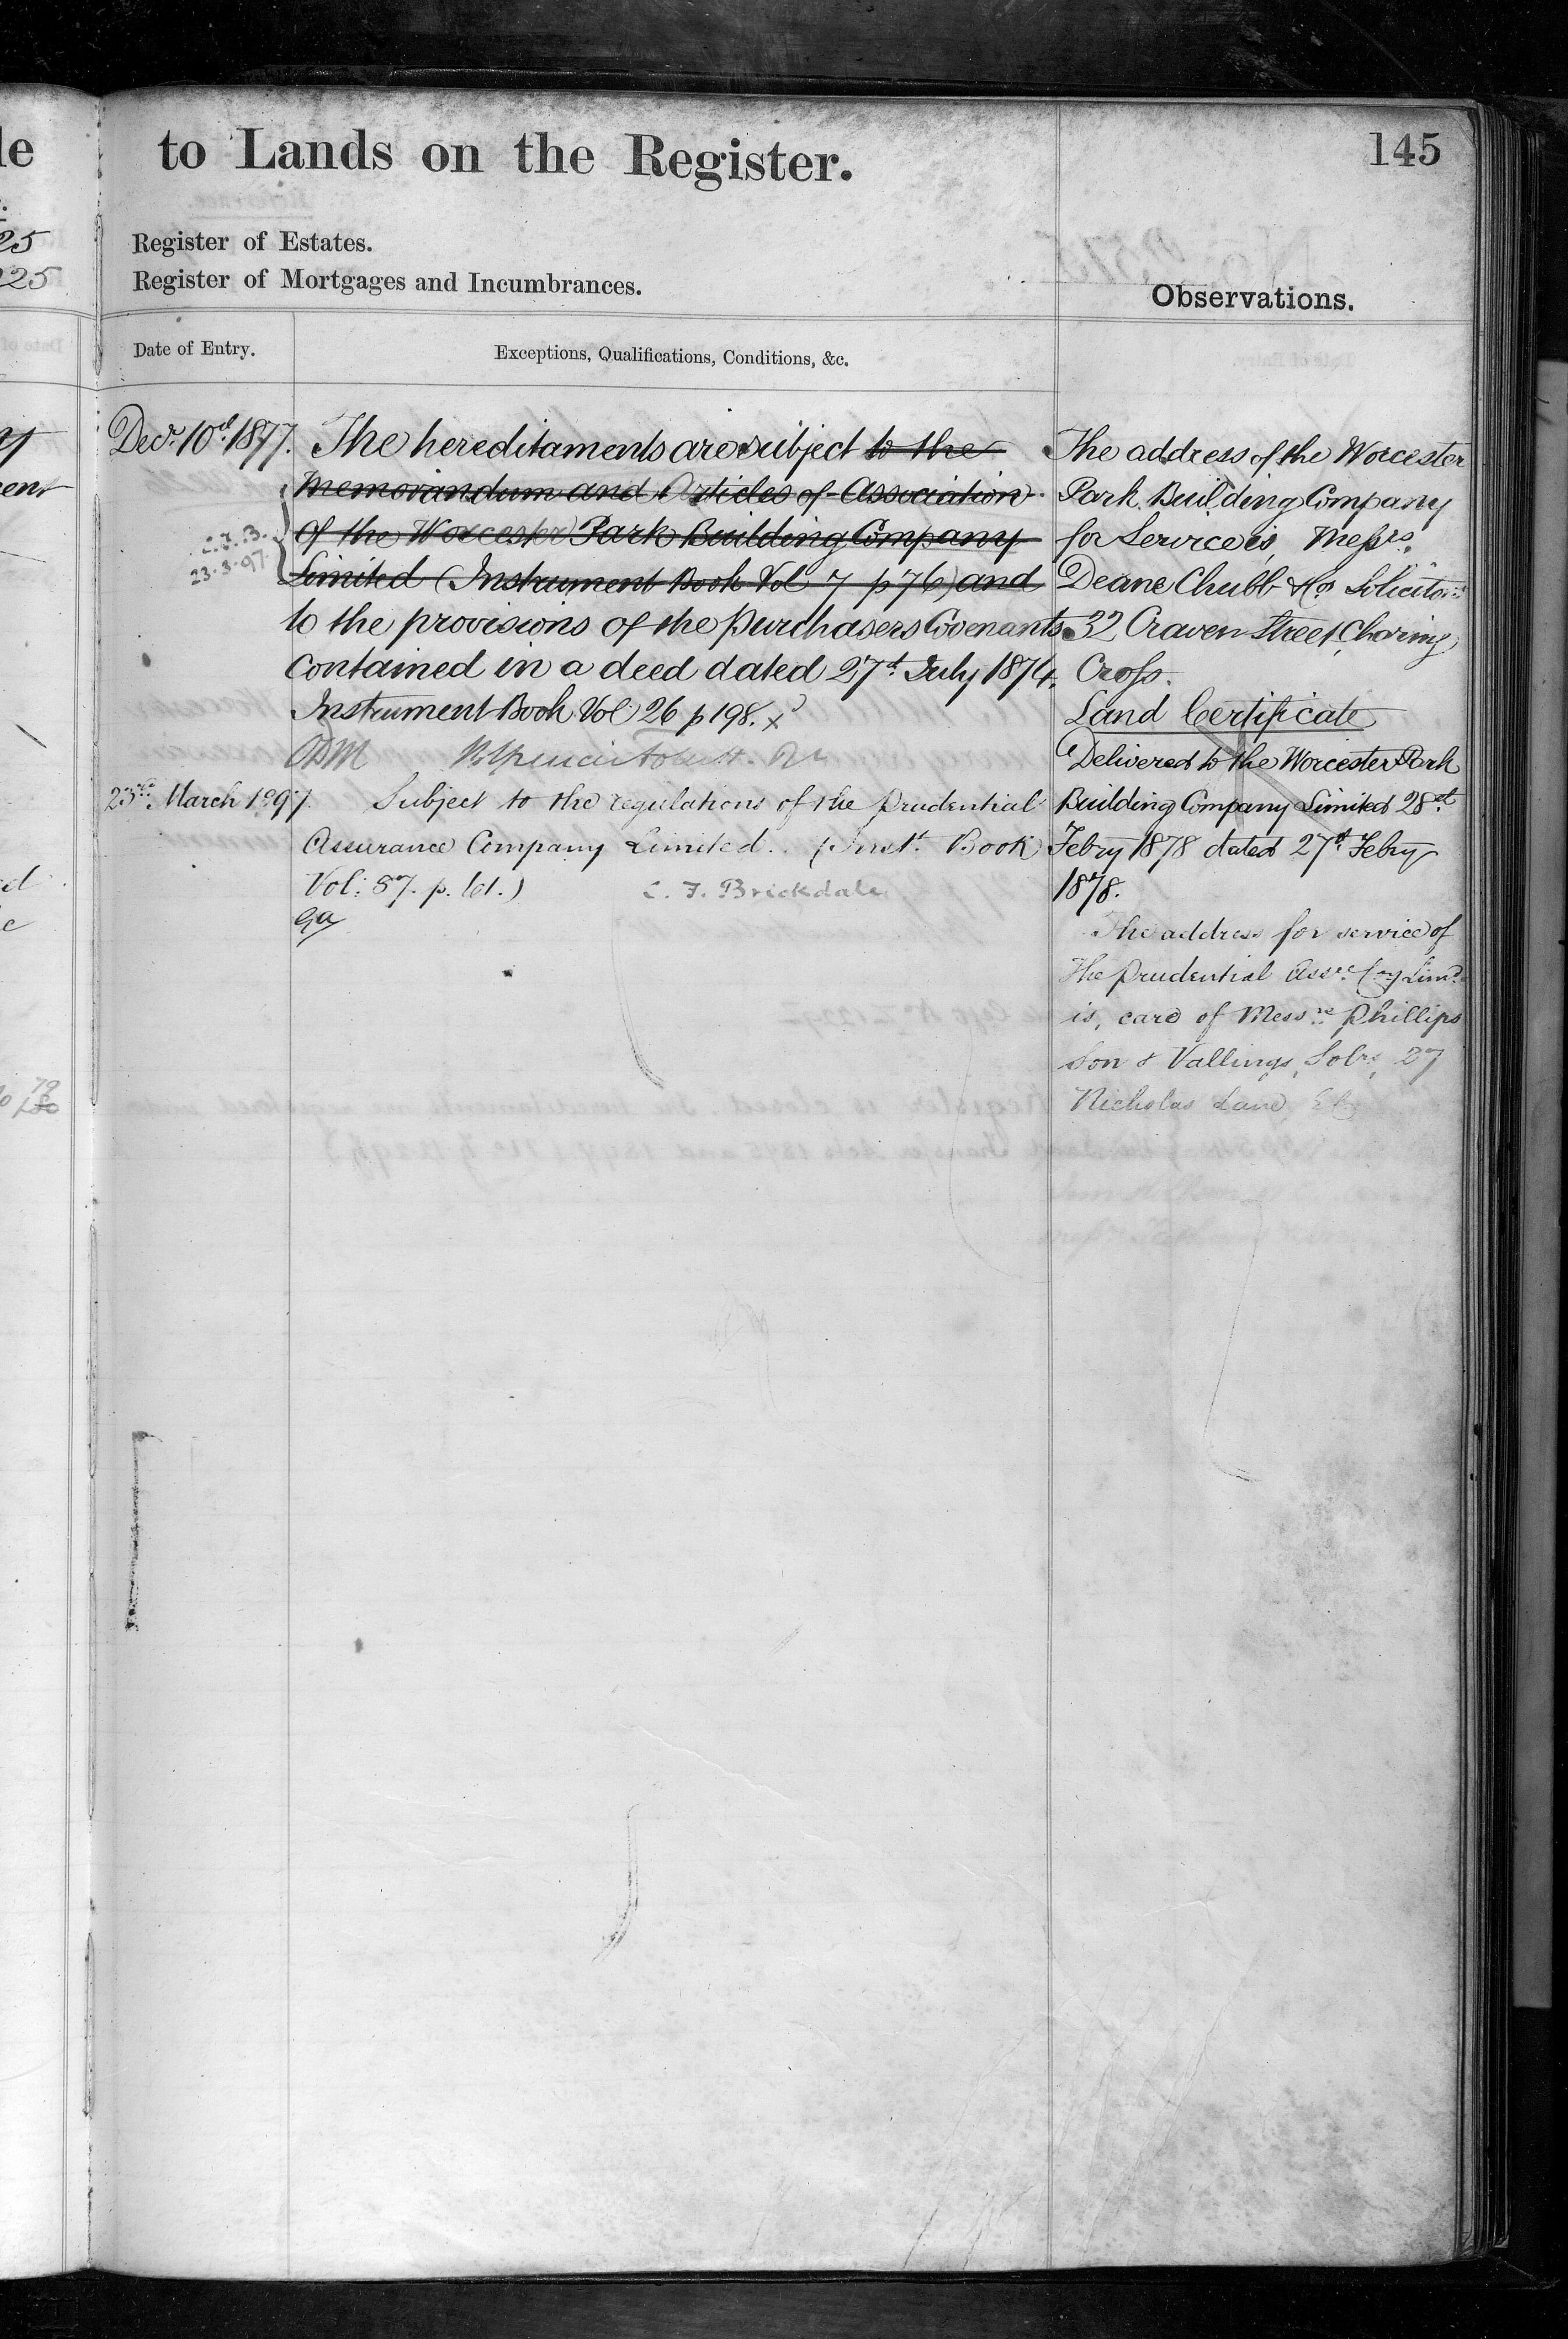 to Lands on the Register.
145
Register of Estates.
Register of Mortgages and Incumbrances.
Observations.
Date of Entry.
Exceptions, Qualifications, Conditions, &c.
Decr. 10th 1877.
The hereditaments are subject to the
Memorandum and Articles of Association
of the Worcester Park Building Company
Limited (Instrument Book Vol 7 p 76) and
to the provisions of the Purchasers Covenants
contained in a deed dated 27th July 1874.
Instrument Book Vol 26 p 198. x
C.F.B.
23.3.97
23rd. March 1897.
Subject to the regulations of the Prudential
Assurance Company Limited. (Inst. Book
Vol: 57. p. 61.)
C. F. Brickdale
The address of the Worcester
Park Building Company
for Service is Messrs.
Deane Chubb & Co Solicitors
32 Craven Street Charing
Cross.
Land Certificate
Delivered to the Worcester Park
Building Company Limited 28th
Febry 1878 dated 27th Febry
1878.
The address for service of
The Prudential Assce Coy Limd.
is, care of Messrs Phillips
Son & Vallings, Solrs, 27
Nicholas Lane, EC